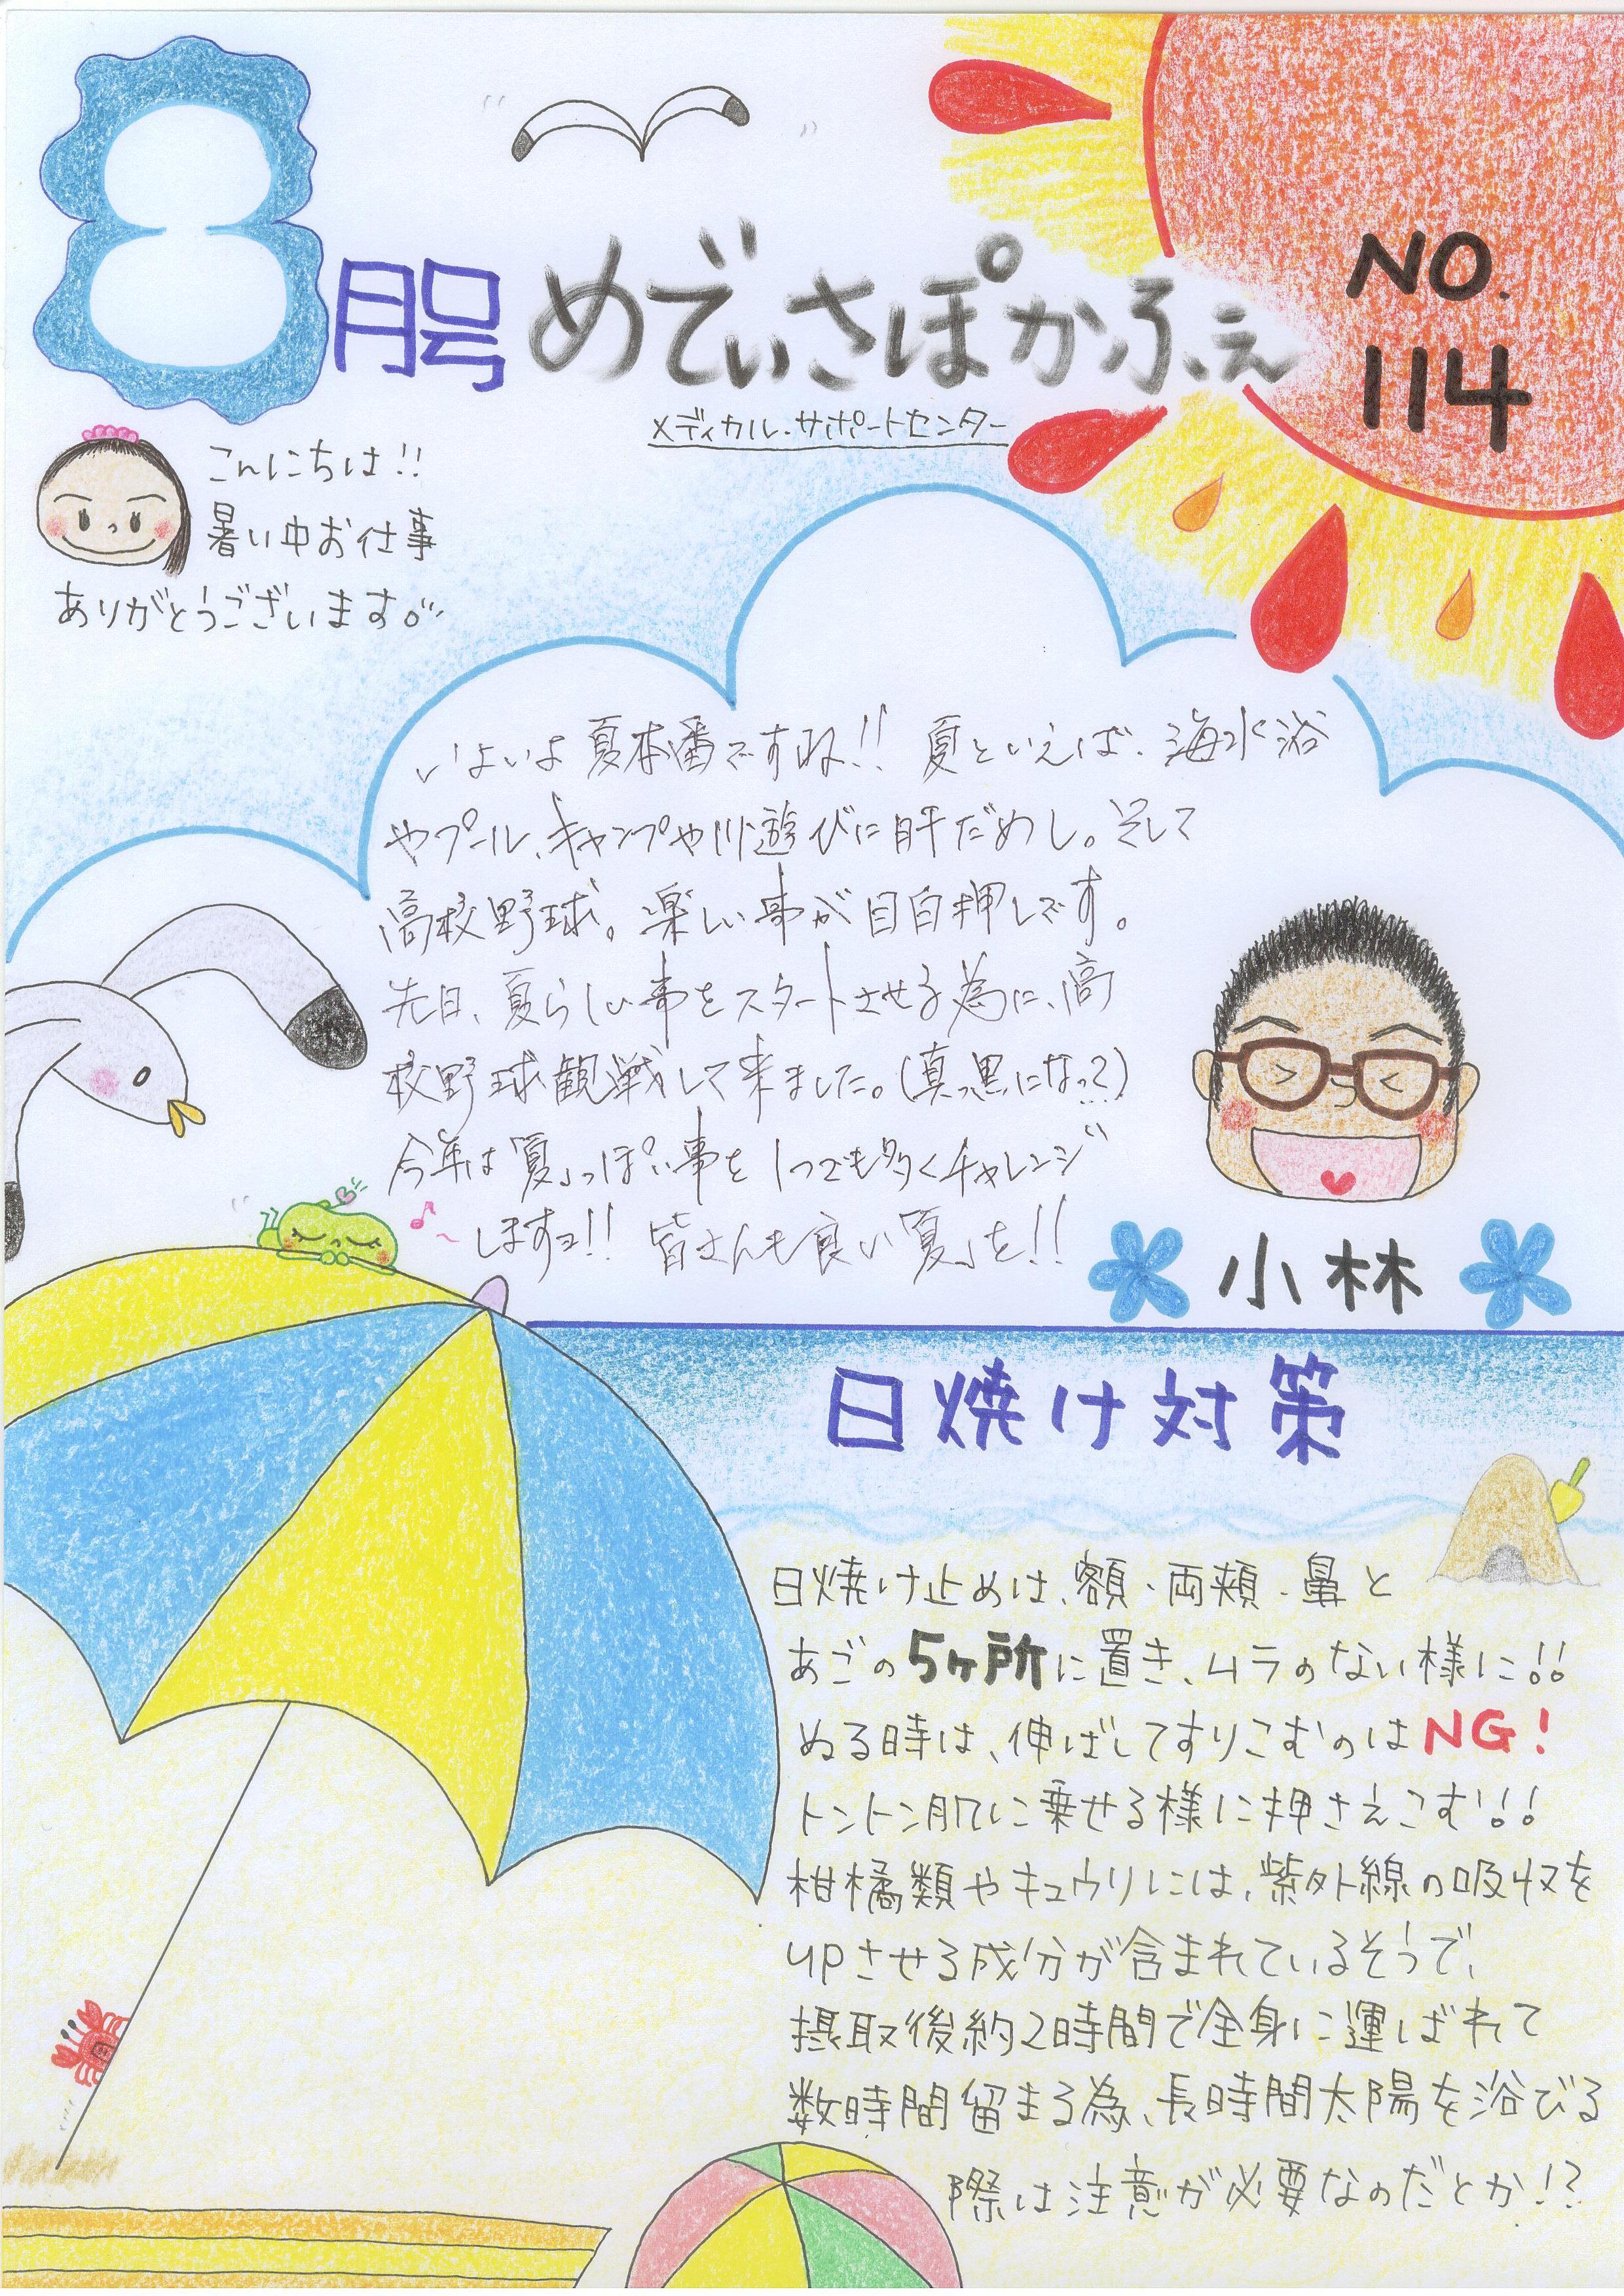 8月号 めでぃさぽかふぇ
NO.
114
メディカル・サポートセンター
こんにちは!!
暑い中お仕事
ありがとうございます。
いよいよ夏本番ですね!! 夏といえば、海水浴
やプール、キャンプや川遊びに肝だめし。そして
高校野球。楽しい事が目白押しです。
先日、夏らしい事をスタートさせる為に、高
校野球観戦して来ました。(真っ黒になって)
今年は「夏」っぽい事を1つでも多くチャレンジ
しますョ!! 皆さんも良い「夏」を!!
小林
日焼け対策
日焼け止めは、額・両頬・鼻と
あごの5ヶ所に置き、ムラのない様に!!
ぬる時は、伸ばしてすりこむのはNG!
トントン肌に乗せる様に押さえこむ!!
柑橘類やキュウリには、紫外線の吸収を
upさせる成分が含まれているそうで、
摂取後約2時間で全身に運ばれて
数時間留まる為、長時間太陽を浴びる
際は注意が必要なのだとか!?